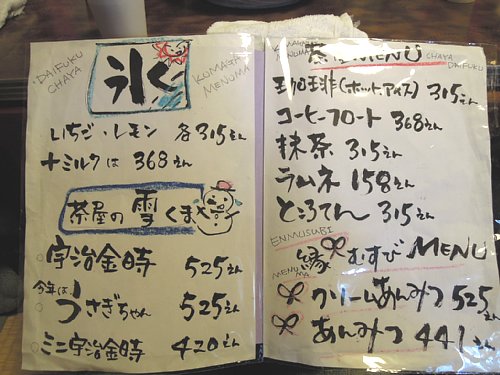 DAIFUKU
CHAYA
氷
KUMAGAI
MENUMA
いちご・レモン 各315えん
+ミルクは 368えん
茶屋の雪くま
宇治金時 525えん
今年は
うさぎちゃん 525えん
ミニ宇治金時 420えん
MENU
CHAYA
DAIFUKU
珈琲(ホット,アイス) 315えん
コーヒーフロート 368えん
抹茶 315えん
ラムネ 158えん
ところてん 315えん
ENMUSUBI
縁むすびMENU
クリームあんみつ 525えん
あんみつ 441えん